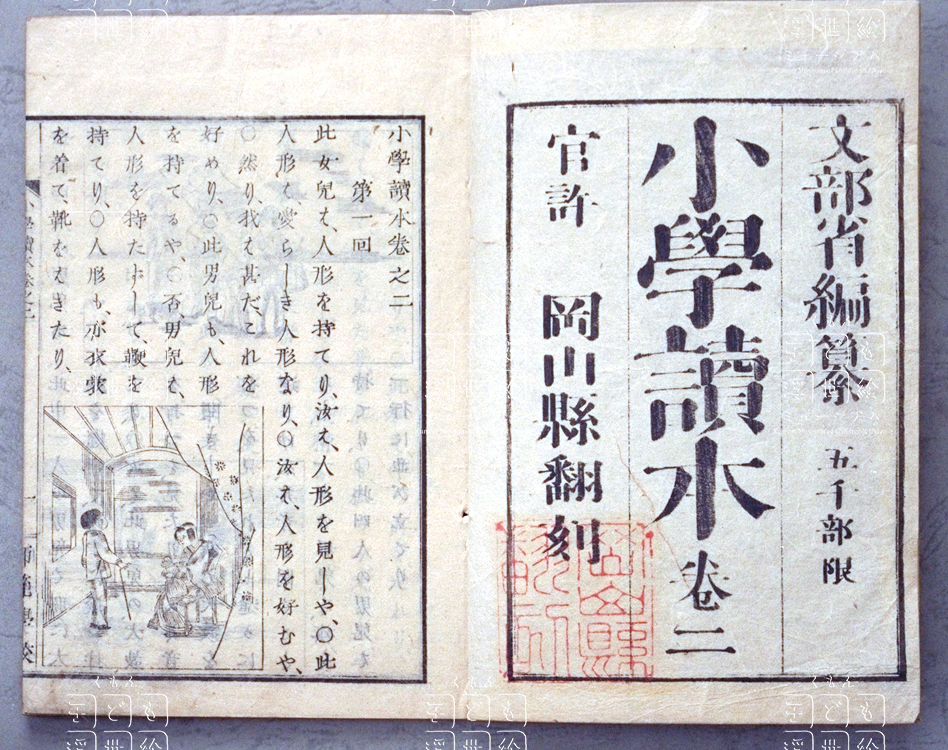 文部省編纂 五千部限
小學讀本 卷二
官許 岡山縣翻刻
小學讀本卷之二
第一回
此女兒ハ、人形を持てり、汝ハ、人形を見しや、〇此
人形ハ、愛らしき人形なり、〇汝ハ、人形を好むや、
〇然り、我ハ甚だ、これを
好めり、〇此男兒も、人形
を持てるや、〇否、男兒ハ、
人形を持たずして、鞭を
持てり、〇人形も、亦衣裳
を着て、靴をはきたり、
師範學校
くもん
子ども
浮世絵